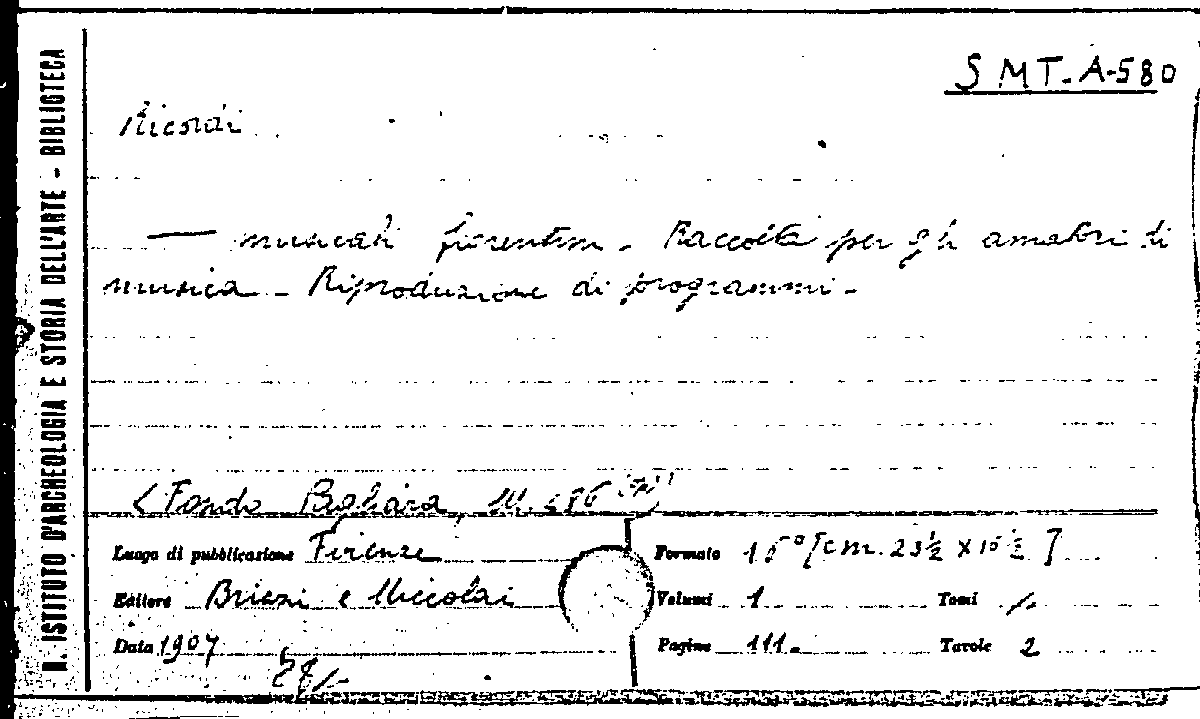 R. ISTITUTO D'ARCHEOLOGIA E STORIA DELL'ARTE - BIBLIOTECA
SMT-A-580
Ricordi
— musicali fiorentini - Raccolta per gli amatori di
musica - Riproduzione di programmi -
(Fondo Pagliara,
Luogo di pubblicazione Firenze
Formato [cm. 23½ x 15½]
Editore e Niccolai
Volumi 1 Tomi /-
Data 1907
Pagine 111- Tavole 2